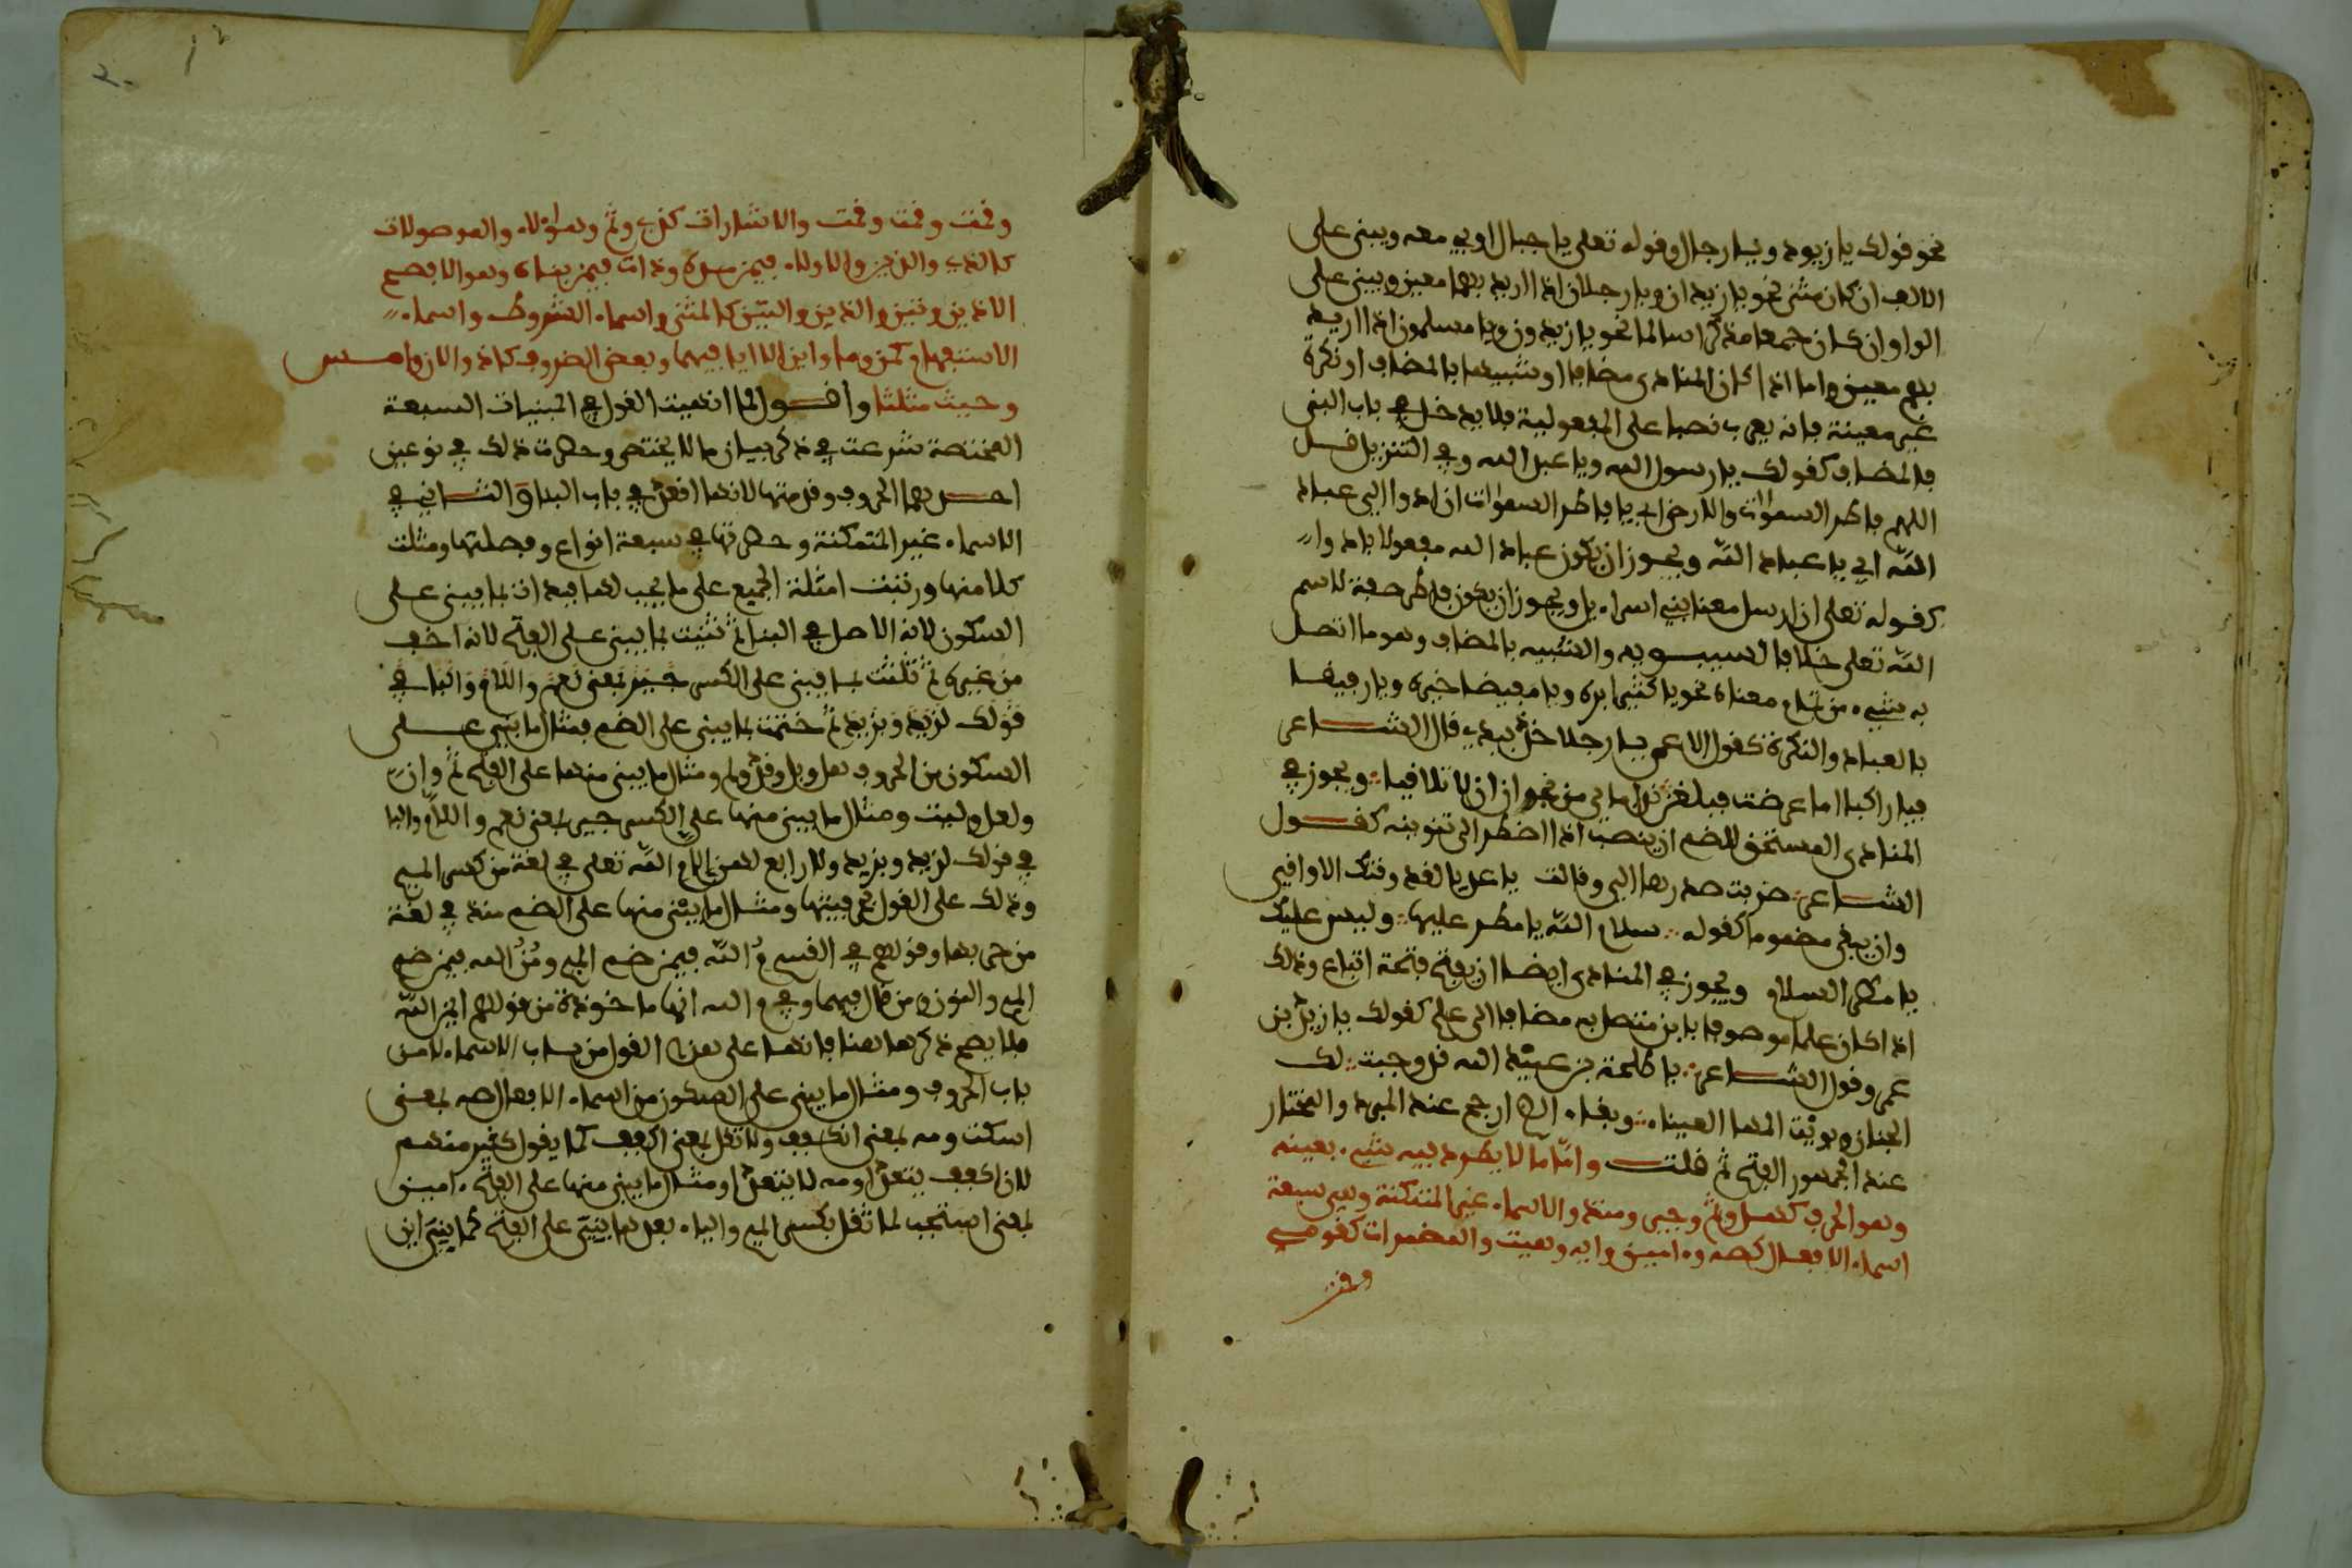 نحو قولك يا زيد ويا رجل وقوله تعلى يا جبال اوبي معه ويبنى على
الالف ان كان مثنى نحو يا زيدان ويا رجلان اذا اريد بهما معين ويبنى على
الواو ان كان جمع مذكر سالما نحو يا زيدون ويا مسلمون اذا اريد
بهم معين واما اذا كان المنادى مضافا او شبيها بالمضاف او نكرة
غير معينة فانه يعرب نصبا على المفعولية فلا يدخل في باب البنى
فالمضاف كقولك يا رسول الله ويا عبد الله وفي التنزيل قل
اللهم فاطر السموات والارض اي يا فاطر السموات ان ادوا الي عباد
الله اي يا عباد الله ويجوز ان يكون عباد الله مفعولا بادوا
كقوله تعلى ان ارسل معنا بني اسراءيل ويجوز ان يكون فاطر صفة لاسم
الله تعلى خلافا لسيبويه والشبيه بالمضاف وهو ما اتصل
به شيء من تمام معناه نحو يا كثيرا بره ويا مفيضا خيره ويا رفيقا
بالعباد والنكرة كقول الاعمى يا رجلا خذ بيدي قال الشاعر
فيا راكبا اما عرضت فبلغن نداماي من نجران ان لا تلاقيا ويجوز في
المنادى المستحق للضم ان ينصب اذا اضطر الى تنوينه كقول
الشاعر ضربت صدرها الي وقالت يا عديا لقد وقتك الاواقي
وان يبقى مضموما كقوله سلام الله يا مطر عليها وليس عليك
يا مطر السلام ويجوز في المنادى ايضا ان يفتح فتحة اتباع وذلك
اذا كان علما موصوفا بابن متصل به مضافا الى علم كقولك يا زيد بن
عمرو وقول الشاعر يا طلحة بن عبيد الله قد وجبت لك
الجنان وبوئت المها العيناء وبقاء الضم ارجح عند المبرد والمختار
عند الجمهور الفتح ثم قلت واما ما لا يطرد فيه شيء بعينه
وهو الحرف كهل وثم وجير ومنذ والاسماء غير المتمكنة وهي سبعة
اسماء الافعال كصه وءامين وايه وهيت والمضمرات كقومي
وقمت
وقمت وقمت وقمت والاشارات كذي وثم وهؤلاء والموصولات
كالذي والذين والاولاء فيمن مده وذات فيمن بناه وهو الافصح
الا ذين وتين والذين والتين كالمثنى واسماء الشروط واسماء
الاستفهام كمن وما واين الا ايا فيهما وبعض الظروف كاذ والان وامس
وحيث مثلثا واقول لما انهيت القول في المبنيات السبعة
المختصة شرعت في ذكر بيان ما لا يختص وحصرت ذلك في نوعين
احدهما الحروف وقدمتها لانها اقعد في باب البناء والثاني
الاسماء غير المتمكنة وحصرتها في سبعة انواع وفصلتها ومثلت
كلا منها ورتبت امثلة الجميع على ما يجب لها فبدات بما يبنى على
السكون لانه الاصل في البنا ثم ثنيت بما يبنى على الفتح لانه اخف
من غيره ثم ثلثت بما يبنى على الكسر جير بمعنى نعم واللام والبا في
قولك لزيد وبزيد ثم ختمت بما يبنى على الضم فمثال ما بني على
السكون من الحروف هل وبل وقد ولم ومثال ما يبنى منها على الفتح ثم وان
ولعل وليت ومثال ما يبنى منها على الكسر جير بمعنى نعم واللام والبا
في قولك لزيد وبزيد ولا رابع لهن الا م الله تعلى في لغة من كسر الميم
وذلك على القول بحرفيتها ومثال ما يبنى منها على الضم منذ في لغة
من جر بها وقولهم في القسم م الله فيمن ضم الميم ومن الله فيمن ضم
الميم والنون ومن قال فيهما وفي م الله انها ماخوذة من قولهم ايمن الله
فلا يصح ذكرها هنا فانها على هذا القول من باب الاسماء لا من
باب الحروف ومثال ما يبنى على السكون من اسماء الافعال صه بمعنى
اسكت ومه بمعنى انكفف ولا تقل بمعنى اكفف كما يقول كثير منهم
لان اكفف يتعدى ومه لا يتعدى ومثال ما يبنى منها على الفتح ءامين
بمعنى استجب لما ثقل بكسر الميم والياء بعدها بني على الفتح كما بني اين